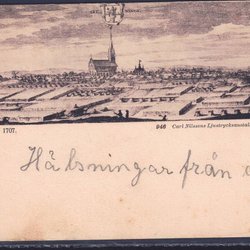 1707.
946 Carl Nilssons Ljustrycksanstal
Hälsningar från